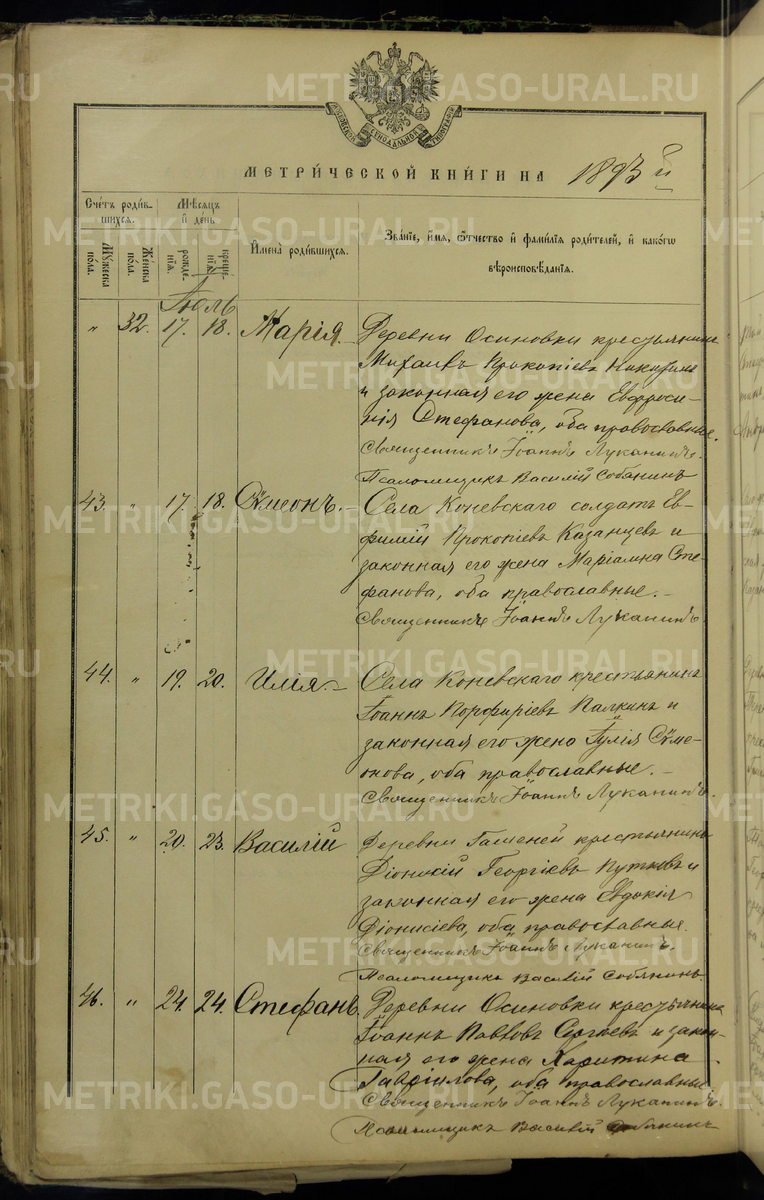 МЕТРИ́ЧЕСКОЙ КНИ́ГИ НА 1893 й
Сче́тъ роди́в-
шихся.
Мѣ́сяцъ
и҆ день
Мꙋ́жеска
по́ла.
Же́нска
по́ла.
рожде-
нїѧ.
креще-
нїѧ.
И҆мена̀ роди́вшихся.
Зва́нїе, и҆́мя, ѻ҆́тчество и҆ фами́лїя роди́телей, и҆ како́гѡ
вѣроисповѣ́данїя.
Іюль
„ 32. 17. 18. Марія. Деревни Осиновки крестьянинъ
Михаилъ Прокопіевъ
и законная его жена Евфроси-
нія Стефанова, оба православные.
Священникъ Іоаннъ Луканинъ.
Псаломщикъ Василій Собянинъ
43. „ 17. 18. Сѵмеонъ. Села Коневскаго солдатъ Ев-
фимій Прокопіевъ Казанцевъ и
законная его жена Маріамна Сте-
фанова, оба православные.
Священникъ Іоаннъ Луканинъ.
44. „ 19. 20. Илія. Села Коневскаго крестьянинъ
Іоаннъ Порфиріевъ Палкинъ и
законная его жена Іулія Сѵме-
онова, оба православные.
Священникъ Іоаннъ Луканинъ.
45. „ 20. 23. Василій Деревни Гашеней крестьянинъ
Діонисій Георгіевъ Путковъ и
законная его жена Евдокія
Діонисіева, оба православные.
Священникъ Іоаннъ Луканинъ.
Псаломщикъ Василій Собянинъ
46. „ 24. 24. Стефанъ. Деревни Осиновки крестьянинъ
Іоаннъ Павловъ Сергѣевъ и закон-
ная его жена Харитина
Гавріилова, оба православные
Священникъ Іоаннъ Луканинъ.
Псаломщикъ Василій Собянинъ
METRIKI.GASO-URAL.RU